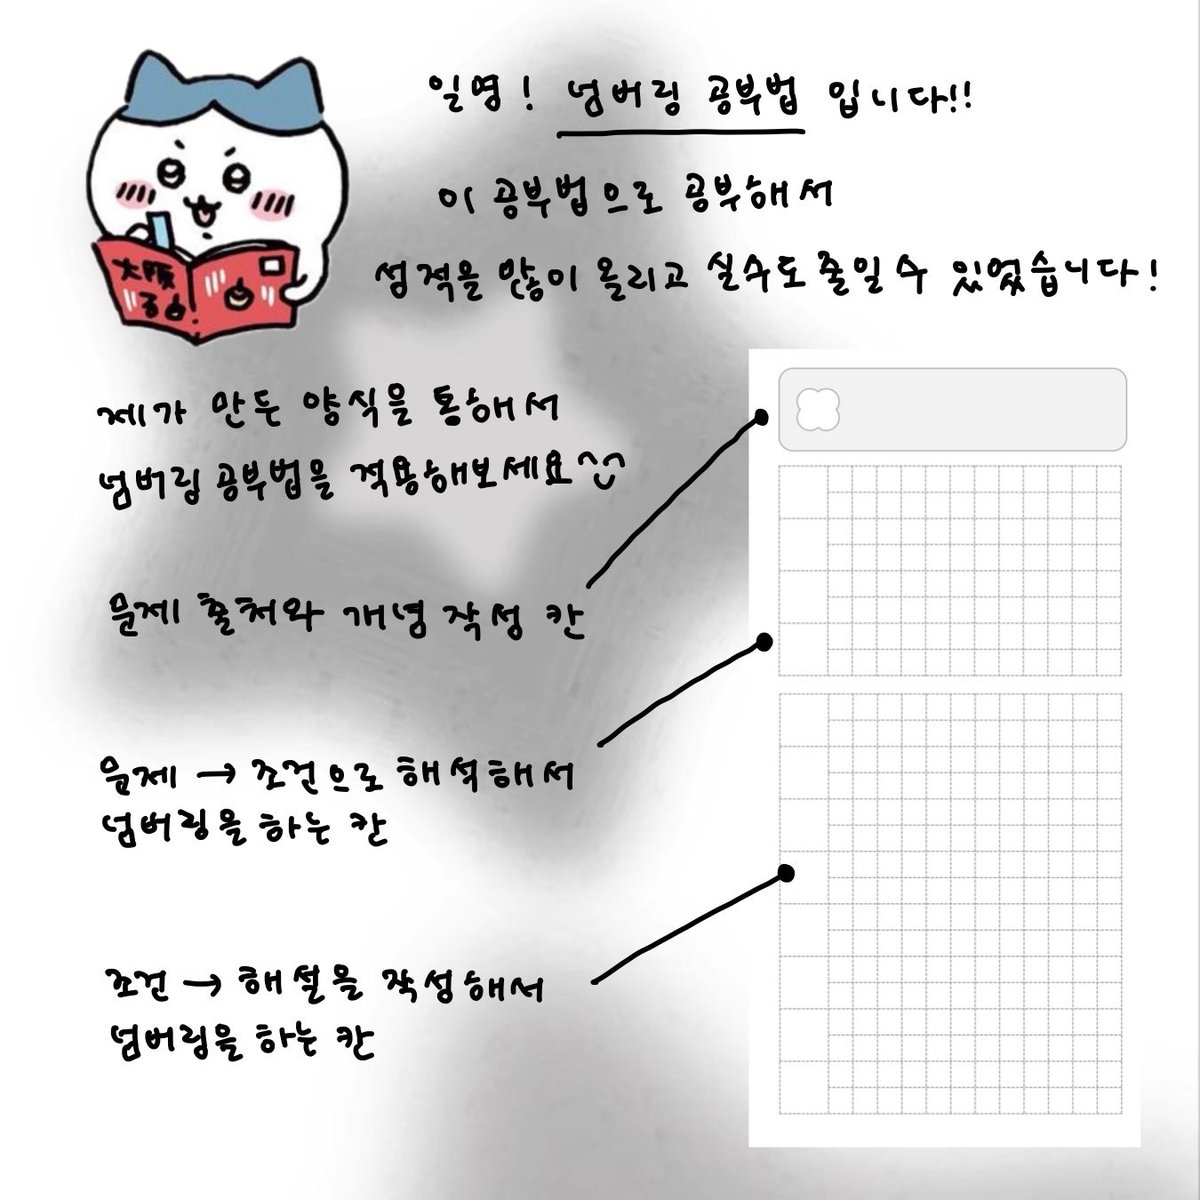 일명! 넘버링 공부법 입니다!!
이 공부법으로 공부해서
성적을 많이 올리고 실수도 줄일 수 있었습니다!
大阪
제가 만든 양식을 통해서
넘버링 공부법을 적용해보세요^^
문제 출처와 개념 작성 칸
문제 → 조건으로 해석해서
넘버링을 하는 칸
조건 → 해설을 작성해서
넘버링을 하는 칸